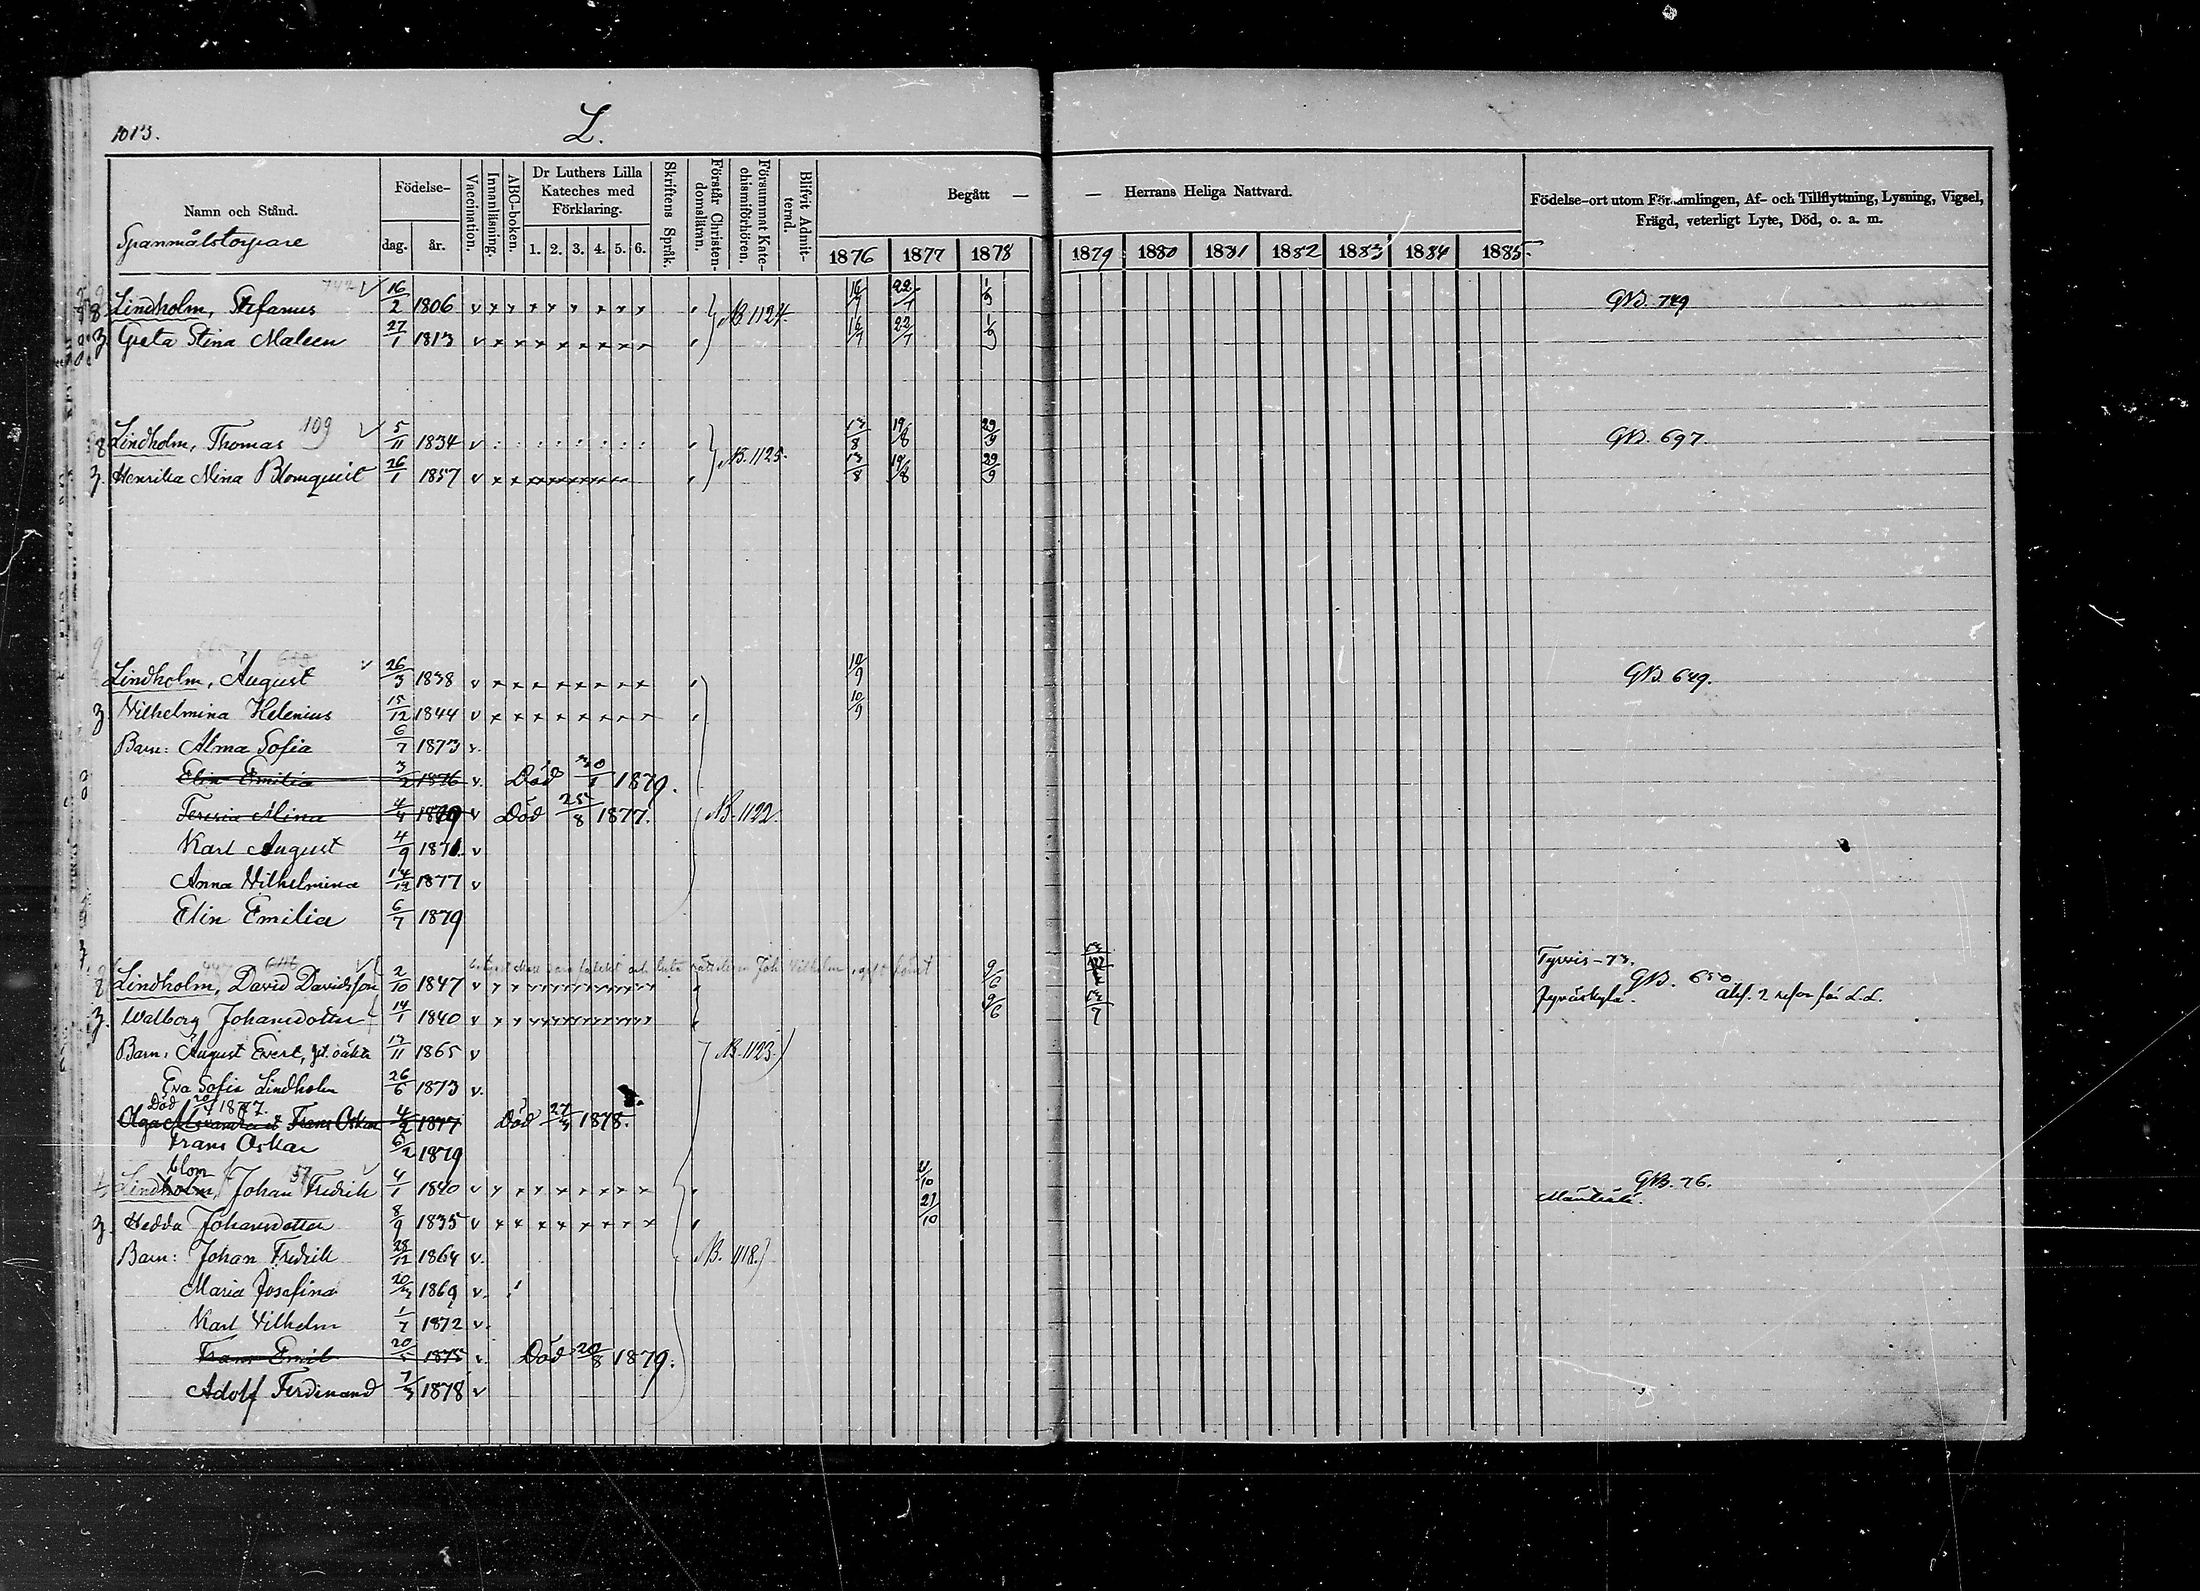 1013.
L.
Namn och Stånd.
Spanmålstorpare
Födelse-
dag.
år.
Vaccination.
Innanläsning.
ABC-boken.
Dr Luthers Lilla
Kateches med
Förklaring.
1. 2. 3. 4. 5. 6.
Skriftens Språk.
Förstår Christen-
domslärn.
Försummat Kate-
chismiförhören.
Blifvit Admit-
terad.
Begått —
— Herrans Heliga Nattvard.
1876 1877 1878 1879 1880 1881 1882 1883 1884 1885.
Födelse-ort utom Församlingen, Af- och Tillflyttning, Lysning, Vigsel,
Frägd, veterligt Lyte, Död, o. a. m.
Lindholm, Stefanus 16/2 1806 v NB. 1124. 16/7 22/7 1/9 GB. 749
Greta Stina Maleen 27/1 1813 v 16/7 22/7 1/9
109
Lindholm, Thomas 5/11 1834 v NB. 1125. 13/8 19/8 29/9 GB. 697.
Henrika Mina Blomquist 26/1 1857 v 13/8 19/8 29/9
Lindholm, August 26/3 1838 v 10/9 GB. 649.
Vilhelmina Helenius 15/12 1844 v 10/9
Barn: Alma Sofia 6/7 1873 v.
Elin Emilia 3/2 1876 v. Död 30/1 1879.
Mina v Död 25/8 1877. NB. 1122.
Karl August 4/9 v
Anna Vilhelmina 14/12 1877 v
Elin Emilia 6/7 1879
Tyrvis - 73.
Lindholm, David Davidsson 2/10 1847 v 9/6 GB. 650.
Jyväskylä.
Walborg Johansdotter 14/1 1840 v 9/6
Barn: August Evert, 13/11 1865 v NB. 1123.
Eva Sofia Lindholm 26/6 1873 v.
Död 1877.
Olga Frans Oskar 4/2 1877 Död 1878.
Frans Oskar 6/2 1879
blom
57
Lindholm, Johan Fredrik 4/1 1840 v 21/10 GB. 76.
Hedda Johansdotter 8/9 1835 v 21/10
Barn: Johan Fredrik 28/12 1864 v. NB. 1118.
Maria Josefina 1869 v.
Karl Vilhelm 1/7 1872 v.
Frans Emil 20/5 1875 v. Död 20/8 1879.
Adolf Ferdinand 7/3 1878 v